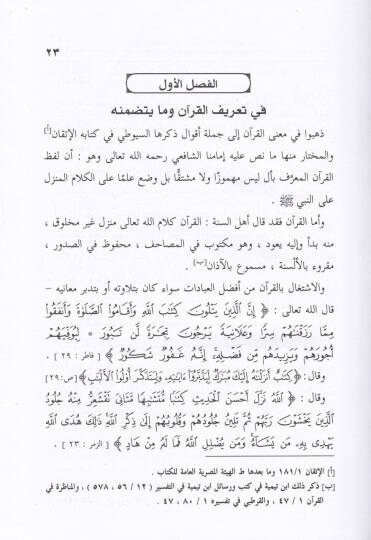 ٢٣
الفصل الأول
في تعريف القرآن وما يتضمنه
ذهبوا في معنى القرآن إلى جملة أقوال ذكرها السيوطي في كتابه الإتقان[أ]
والمختار منها ما نص عليه إمامنا الشافعي رحمه الله تعالى وهو : أن لفظ
القرآن المعرّف بأل ليس مهموزًا ولا مشتقًّا بل وضع علمًا على الكلام المنزل
على النبي ﷺ .
وأما القرآن فقد قال أهل السنة : القرآن كلام الله تعالى منزل غير مخلوق ،
منه بدأ وإليه يعود ، وهو مكتوب في المصاحف ، محفوظ في الصدور ،
مقروء بالألسنة ، مسموع بالآذان[ب] .
والاشتغال بالقرآن من أفضل العبادات سواء كان بتلاوته أو بتدبر معانيه –
قال الله تعالى : ﴿ إِنَّ الَّذِينَ يَتْلُونَ كِتَابَ اللَّهِ وَأَقَامُوا الصَّلَاةَ وَأَنفَقُوا
مِمَّا رَزَقْنَاهُمْ سِرًّا وَعَلَانِيَةً يَرْجُونَ تِجَارَةً لَّن تَبُورَ * لِيُوَفِّيَهُمْ
أُجُورَهُمْ وَيَزِيدَهُم مِّن فَضْلِهِ إِنَّهُ غَفُورٌ شَكُورٌ ﴾ [ فاطر : ٢٩ ] .
وقال : ﴿ كِتَابٌ أَنزَلْنَاهُ إِلَيْكَ مُبَارَكٌ لِّيَدَّبَّرُوا آيَاتِهِ وَلِيَتَذَكَّرَ أُولُوا الْأَلْبَابِ ﴾ [ص : ٢٩]
وقال : ﴿ اللَّهُ نَزَّلَ أَحْسَنَ الْحَدِيثِ كِتَابًا مُّتَشَابِهًا مَّثَانِيَ تَقْشَعِرُّ مِنْهُ جُلُودُ
الَّذِينَ يَخْشَوْنَ رَبَّهُمْ ثُمَّ تَلِينُ جُلُودُهُمْ وَقُلُوبُهُمْ إِلَىٰ ذِكْرِ اللَّهِ ذَٰلِكَ هُدَى اللَّهِ
يَهْدِي بِهِ مَن يَشَاءُ وَمَن يُضْلِلِ اللَّهُ فَمَا لَهُ مِنْ هَادٍ ﴾ [ الزمر : ٢٣ ] .
[أ] الإتقان ١٨١/١ وما بعدها ط الهيئة المصرية العامة للكتاب .
[ب] ذكر ذلك ابن تيمية في كتب ورسائل ابن تيمية في التفسير ( ١٢ / ٥٦ ، ٥٧٨ ) ، والمناظرة في
القرآن ١ / ٤٧ ، والقرطبي في تفسيره ١ / ٨٠ ، ٤٧ .